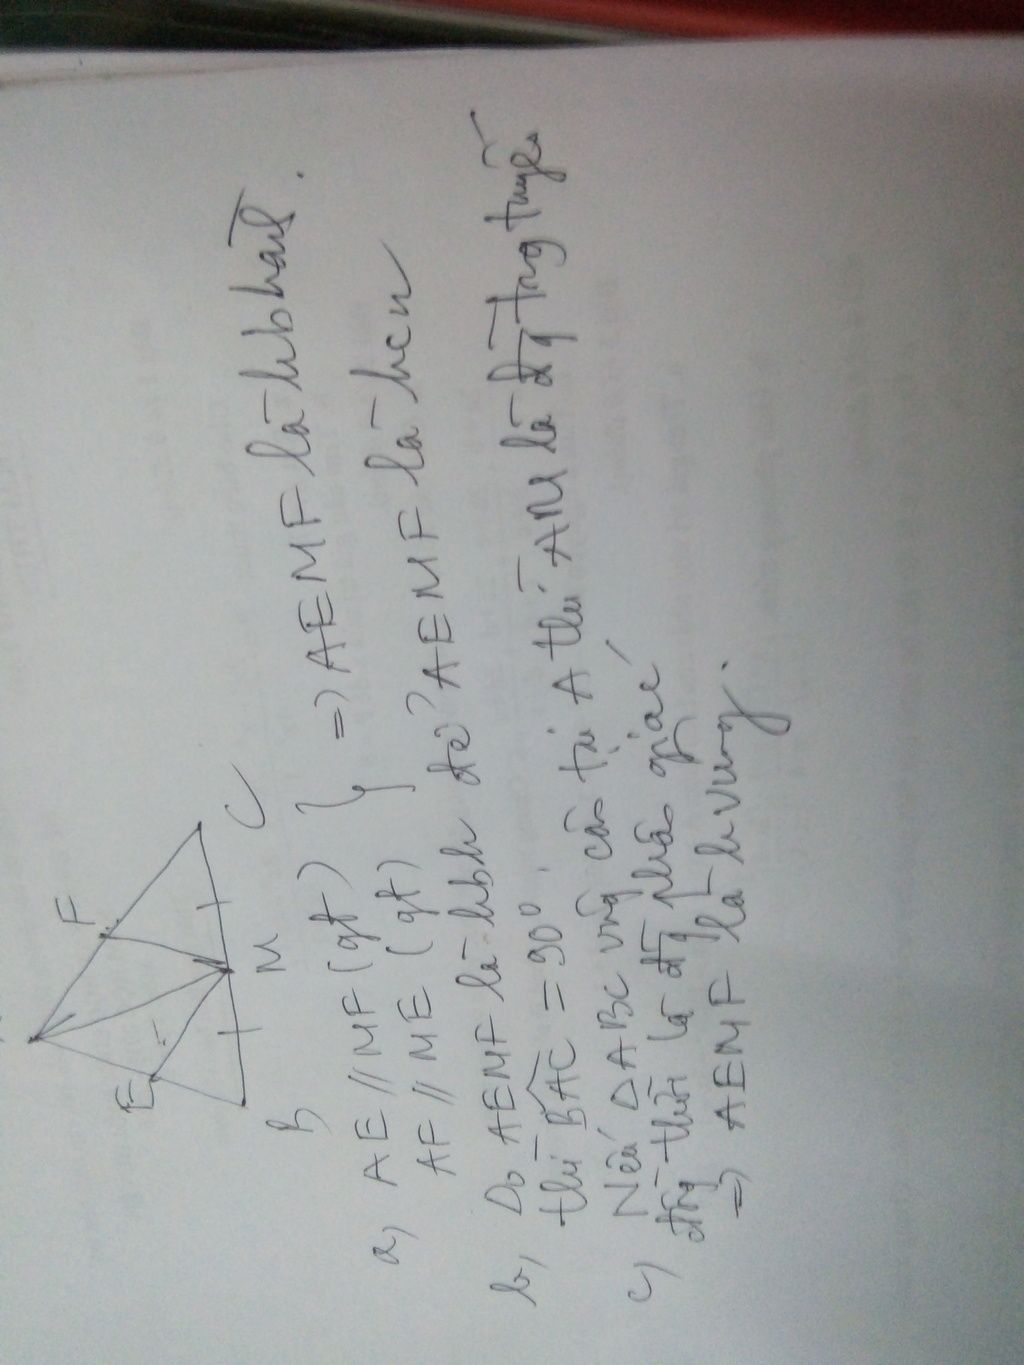 E
F
B
M
C
a) AE // MF (gt)
AF // ME (gt) } => AEMF là hbhành.
b) Do AEMF là hbh để AEMF là hcn
thì BAC = 90°.
c) Nếu ΔABC vuông cân tại A thì AM là đg trug tuyến
đồng thời là đg phân giác
=> AEMF là h vuông.